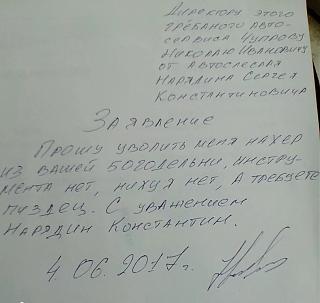 Директору этого
гребаного авто-
сервиса Чупрову
Николаю Ивановичу
от автослесаря
Нарядина Сергея
Константиновича
Заявление
Прошу уволить меня нахер
из вашей богодельни, инстру-
мента нет, нихуя нет, а требуете
пиздец. С уважением
Нарядин Константин.
4.06.2017г.